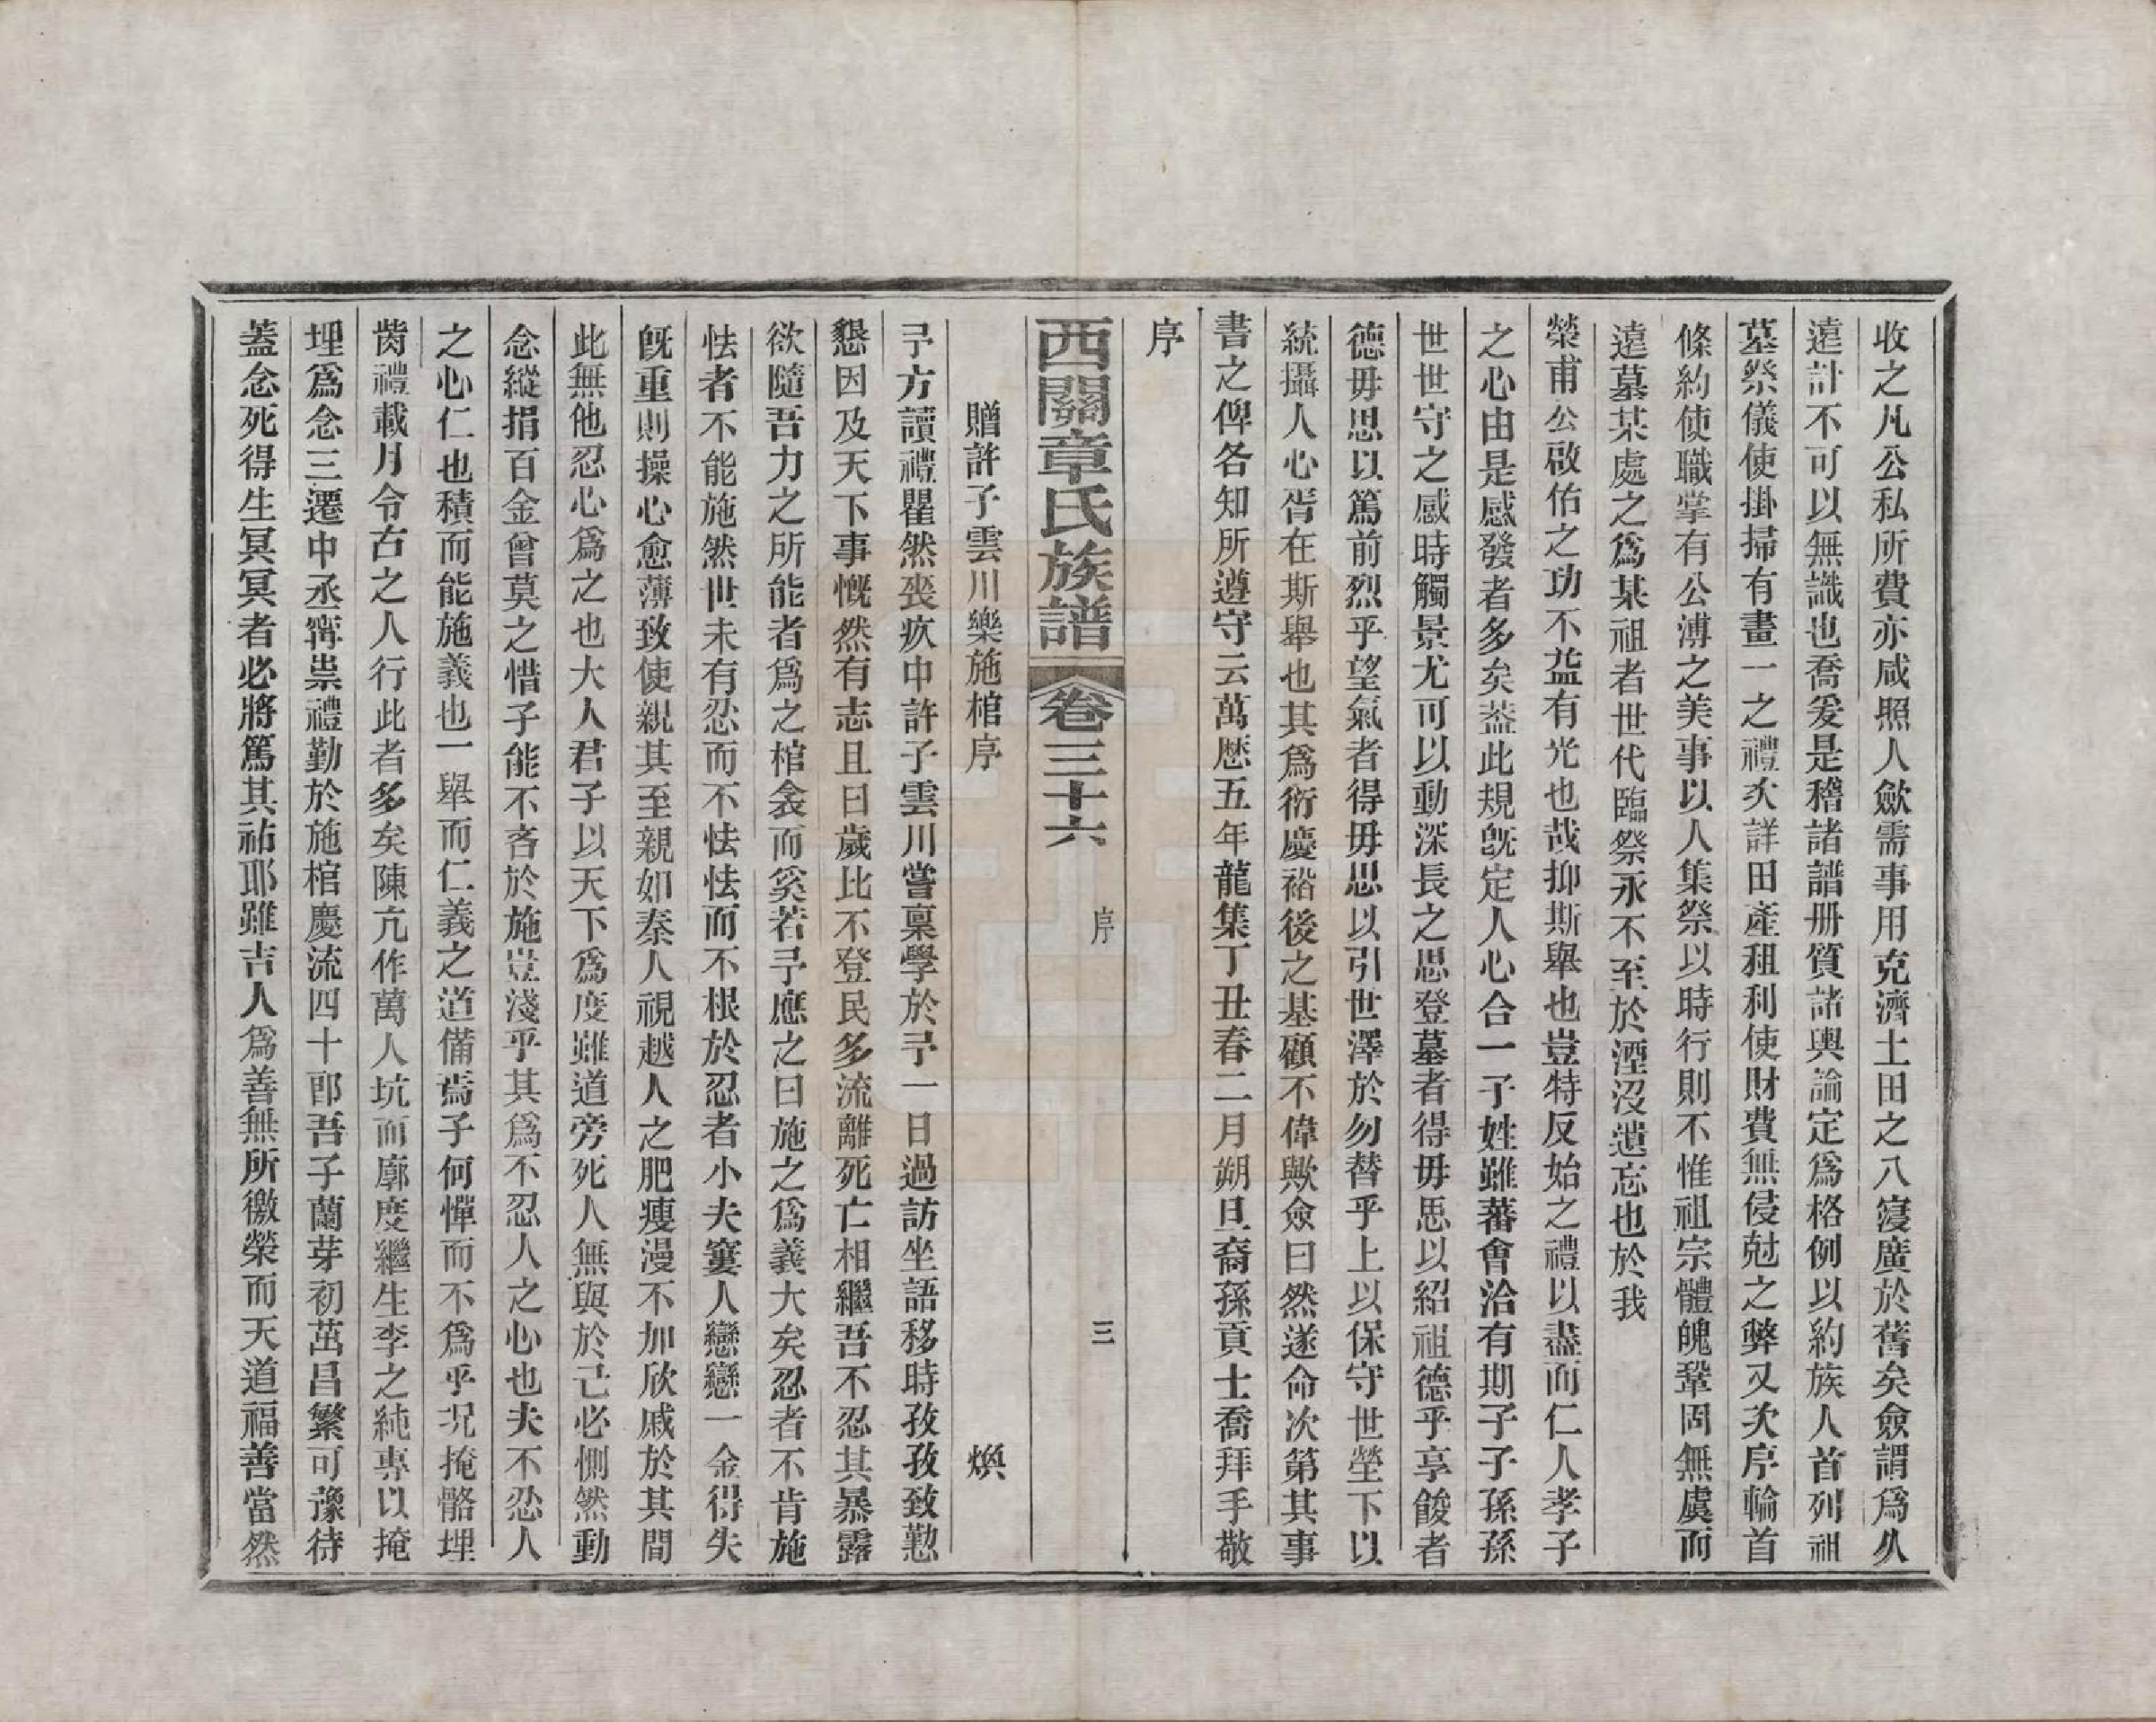 收之凡公私所費亦咸照人歛需事用克濟土田之入寔廣於舊矣僉謂爲久
遠計不可以無識也喬爰是稽諸譜册質諸輿論定爲格例以約族人首列祖
墓祭儀使掛掃有畫一之禮次詳田產租利使財費無侵尅之弊又次序輪首
條約使職掌有公溥之美事以人集祭以時行則不惟祖宗體魄鞏固無虞而
遠墓某處之爲某祖者世代臨祭永不至於湮沒遺忘也於我
榮甫公啟佑之功不益有光也哉抑斯舉也豈特反始之禮以盡而仁人孝子
之心由是感發者多矣葢此規旣定人心合一子姓雖蕃會洽有期子子孫孫
世世守之感時觸景尤可以動深長之思登墓者得毋思以紹祖德乎享餕者
德毋思以篤前烈乎望氣者得毋思以引世澤於勿替乎上以保守世塋下以
統攝人心胥在斯舉也其爲衍慶裕後之基顧不偉歟僉曰然遂命次第其事
書之俾各知所遵守云萬歷五年龍集丁丑春二月朔旦裔孫貢士喬拜手敬
序
西關章氏族譜 卷三十六 序 三
贈許子雲川樂施棺序 煥
予方讀禮瞿然喪疚中許子雲川嘗稟學於予一日過訪坐語移時孜孜致懃
懇因及天下事慨然有志且曰歲比不登民多流離死亡相繼吾不忍其暴露
欲隨吾力之所能者爲之棺衾而奚若予應之曰施之爲義大矣忍者不肯施
怯者不能施然世未有忍而不怯怯而不根於忍者小夫窶人戀戀一金得失
旣重則操心愈薄致使親其至親如秦人視越人之肥瘦漫不加欣戚於其間
此無他忍心爲之也大人君子以天下爲度雖道旁死人無與於己必惻然動
念縱捐百金曾莫之惜子能不吝於施豈淺乎其爲不忍人之心也夫不忍人
之心仁也積而能施義也一舉而仁義之道備焉子何憚而不爲乎况掩骼埋
胔禮載月令古之人行此者多矣陳亢作萬人坑而廓度繼生李之純專以掩
埋爲念三遷中丞甯祟禮勤於施棺慶流四十郎吾子蘭芽初茁昌繁可豫待
蓋念死得生冥冥者必將篤其祐耶雖吉人爲善無所徼榮而天道福善當然